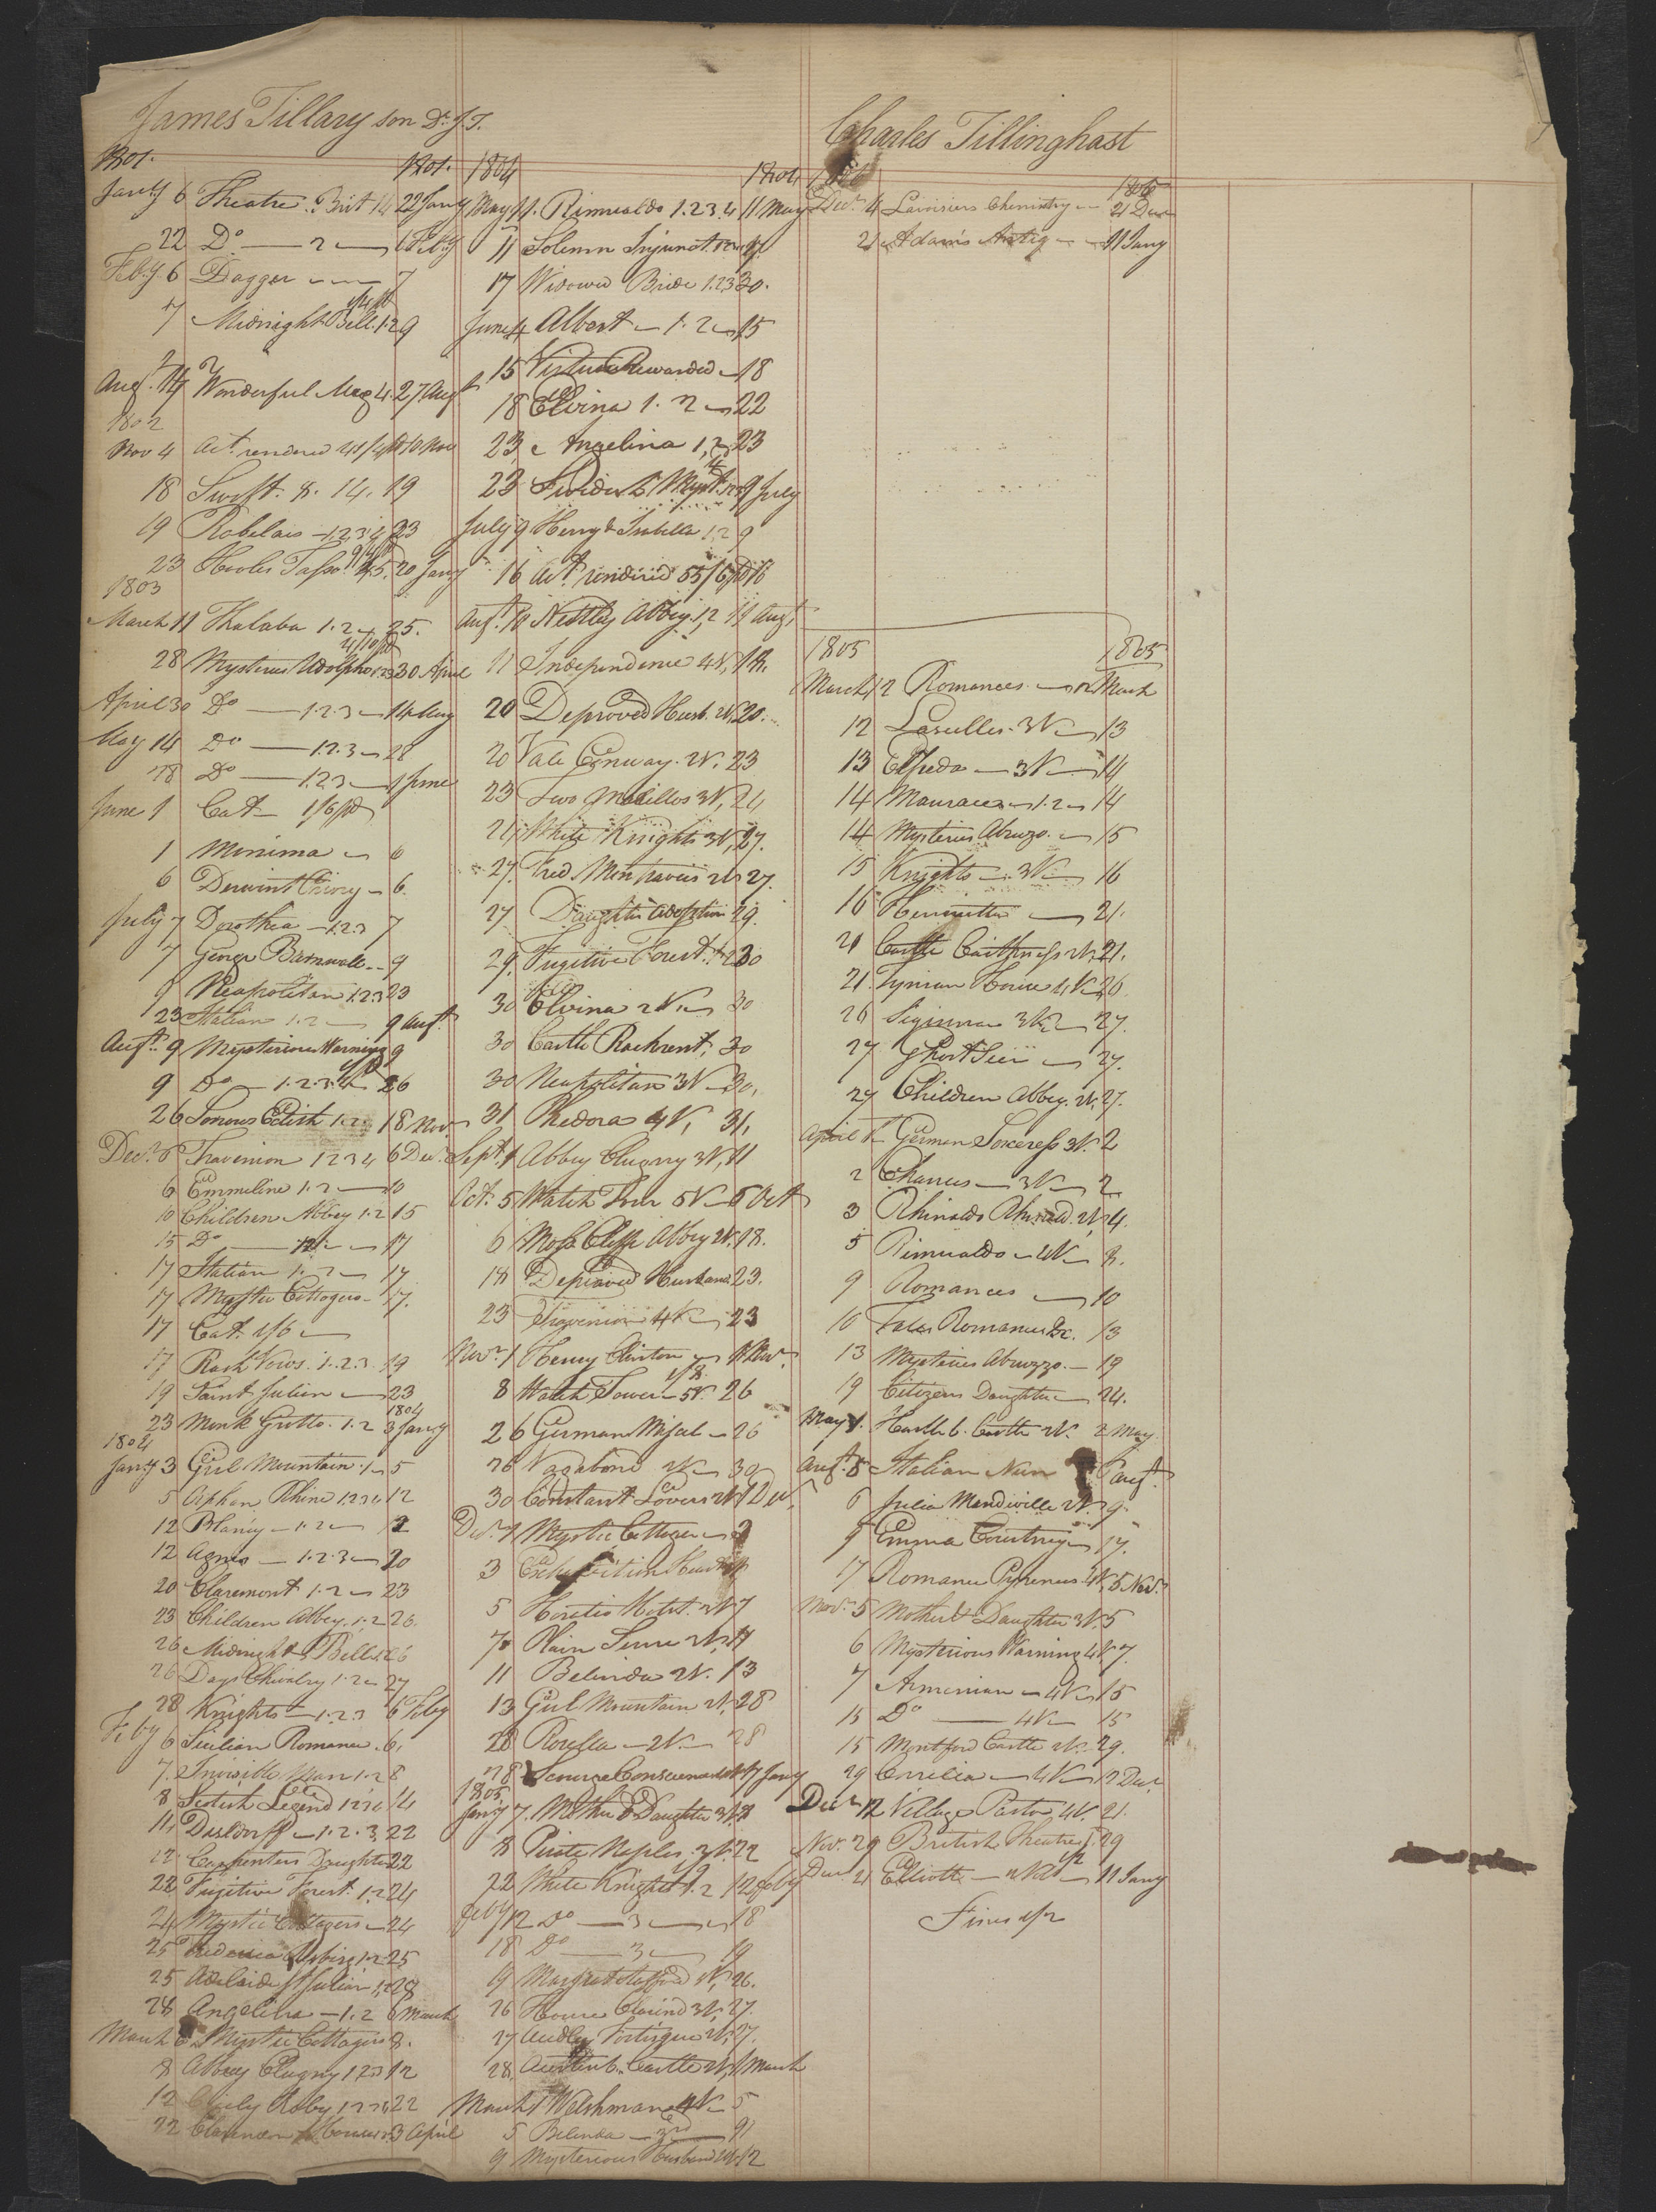 James Tillary son Dr. J. T.
1801. 1801.
Jany 6 Theatre. Brit 14 22 Jany
22 Do — 2 — 6 Feby
Feby 6 Dagger — 7
7 Midnight Bell. 1.2 9
Augt. 14 Wonderful Mag 4. 27 Augt
1802
Nov 4 Act. rendered 10 Nov
18 Swift. 8. 14. 19
19 Rabelais — 1.2.3.4 23
23 Hooles Tasso. 20 Jany
1803
March 11 Thalaba 1.2 — 25.
28 Mysteries Udolpho 1.2.3 30 April
April 30 Do — 1.2.3 — 14 May
May 14 Do — 1.2.3 — 28
28 Do — 1.2.3 — 1 June
June 1 Cat — 1/6 pd
1 Minima — 6
6 Derwent Priory — 6.
July 7 Dorothea — 1.2.3 7
7 George Barnwell — 9
9 Neapolitan 1.2.3 23
23 Italian 1.2 — 9 Augt.
Augt. 9 Mysterious Warnings 9
9 Do — 1.2.3.4 — 26
26 Edith 1.2. 18 Nov.
Decr. 6 Travenion 1 2 3 4 6 Decr.
6 Emmeline 1.2 — 10
10 Children Abbey 1.2 15
15 Do — 17
17 Italian 1.2 — 17
17 Mystic Cottagers — 17.
17 Cat. 1/6 —
17 Rash Vows. 1.2.3 19
19 Saint Julien — 23
23 Monk Grotto. 1.2 1804 3 Jany
1804
Jany 3 Girl Mountain. 1 — 5
5 Orphan Rhine 1 2 3 4 12
12 Blancy — 1.2 — 12
12 Agnes — 1.2.3 — 20
20 Claremont 1.2 — 23
23 Children Abbey. 1.2 26.
26 Midnight Bell 1.2 26
26 Days Chivalry 1.2 — 27
28 Knights — 1.2.3 6 Feby
Feby 6 Sicilian Romance. 6.
7. Invisible Man 1.2 8
8 Scotish Legend 1 2 3 4 14
11. Dusldorff — 1.2.3. 22
12 Carpenters Daughter 22
22 Fugitive Forest. 1.2 24
24 Mystic Cottagers — 24
25 Frederica Risberg 1.2 25
25 Adelaide St Julian 1.2 28
28 Angelina — 1.2 6 March
March 6 Mystic Cottagers 8.
8 Abbey Clugny 1 2 3 12
12 Roby 1 2 3 4 22
22 House 1.2 3 April
1804 1804
May 4. Rimualdo 1.2.3.4 11 May
11 Solemn Injunct. 17.
17 Widowed Bride 1.2.3 30.
June 4 Albert — 1.2 — 15
15 Virtue Rewarded — 18
18 Elvina 1. 2 — 22
23 Angelina 1, 2, 23
23 Myst. 9 July
July 9 Henry & Isabella 1.2 9
16 Act. rendered 55/6 pd 16
Augt. 10 Nettley Abbey. 1,2 11 Augt
11 Independence 4 V, 18.
20 Depraved Husb. 2V, 20.
20 Vale Conway. 2V. 23
23 Two Mentors 3V, 24
24 White Knights 3V, 27.
27. Fred Montravers 2V 27.
27 Daughter Adoption 29.
29. Fugitive Forest. 30
30 Elvina 2 V — 30
30 Castle Rackrent, 30
30 Neapolitan 3V — 30,
31 Phedora 4V, 31,
Sept. 1 Abbey Clugny 3V, 11
Oct. 5 Watch Tower 5V — 5 Oct
6 Moss Cliffe Abbey 2V. 18.
18 Depraved Husband 23.
23 Travenion 4V — 23
Novr. 1 Henry Clinton — 1 Novr.
8 Watch Tower — 5V. 26
26 German Miscel — 26
26 Vagabond 2V — 30
30 Constant Lovers 2V 1 Decr.
Decr. 1 Mystic Cottager — 3
3 Heart
5 Horatio Holst. 2V 7
7 Plain Sense 2V, 11
11 Belinda 2V. 13
13 Girl Mountain 2V, 28
28 Rosella — 2V. — 28
28 Conscience 7 Jany
1805
Jany 7. Mother & Daughter 3V. 8
8 Pirate Naples. 3V. 22
22 White Knights 1.2 12 Feby
Feby 12 Do — 3 — 18
18 Do — 3 — 19
19 Margaret Strafford 3V, 26.
26 House 3V. 27.
27 Audley Fortesque 2V. 27.
28. Austenb. Castle 2V, 1 March
March 1 Welshman 4V — 5
5 Belinda — 3rd — 9
9 Mysterious Husband 4V. 12
1805 1805
March 12 Romances — 12 March
12 Lascelles. 3V — 13
13 Elfreda — 3V — 14
14 Mauraces — 1.2 — 14
14 Mysteries Abruzo. — 15
15 Knights — 3V — 16
16 Henrietta — 21.
21 Castle Caithness 2V 21.
21. Tynian House 4V 26
26 Sigismar 3V — 27.
27 Ghost Seer — 27.
27 Children Abbey. 2V, 27.
April 1 German Sorceress 3V. 2
2 Charms — 3V — 2
3 Rhinaldo Rhinald. 2V 4.
5 Rimualdo — 4V — 8.
9 Romances — 10
10 Tales Romances &c. 13
13 Mysteries Abruzzo. — 19
19 Citizens Daughter — 24.
May 1. Hartleb. Castle 2V. 2 May
Augt. 5 Italian Nun 6 Augt.
6 Julia Mandiville 2V. 9.
9 Emma Courtney — 17.
17 Romance Pyrenees. 4V. 5 Novr.
Novr. 5 Mother & Daughter 3V. 5
6 Mysterious Warning 4V 7.
7 Armenian — 4V — 15
15 Do — 4V — 15
15 Montford Castle 2V. — 29.
29 Cecilia — 4V — 12 Decr.
Decr. 12 Village Pastor 4V. 21.
Charles Tillinghast
1806
Decr. 4 Lavoisiers Chemistry — 21 Decr
21 Adam's Antiq — 11 Jany
Novr. 29 British Theatre 29
Decr 21 Elliott — 11 Jany
Fines